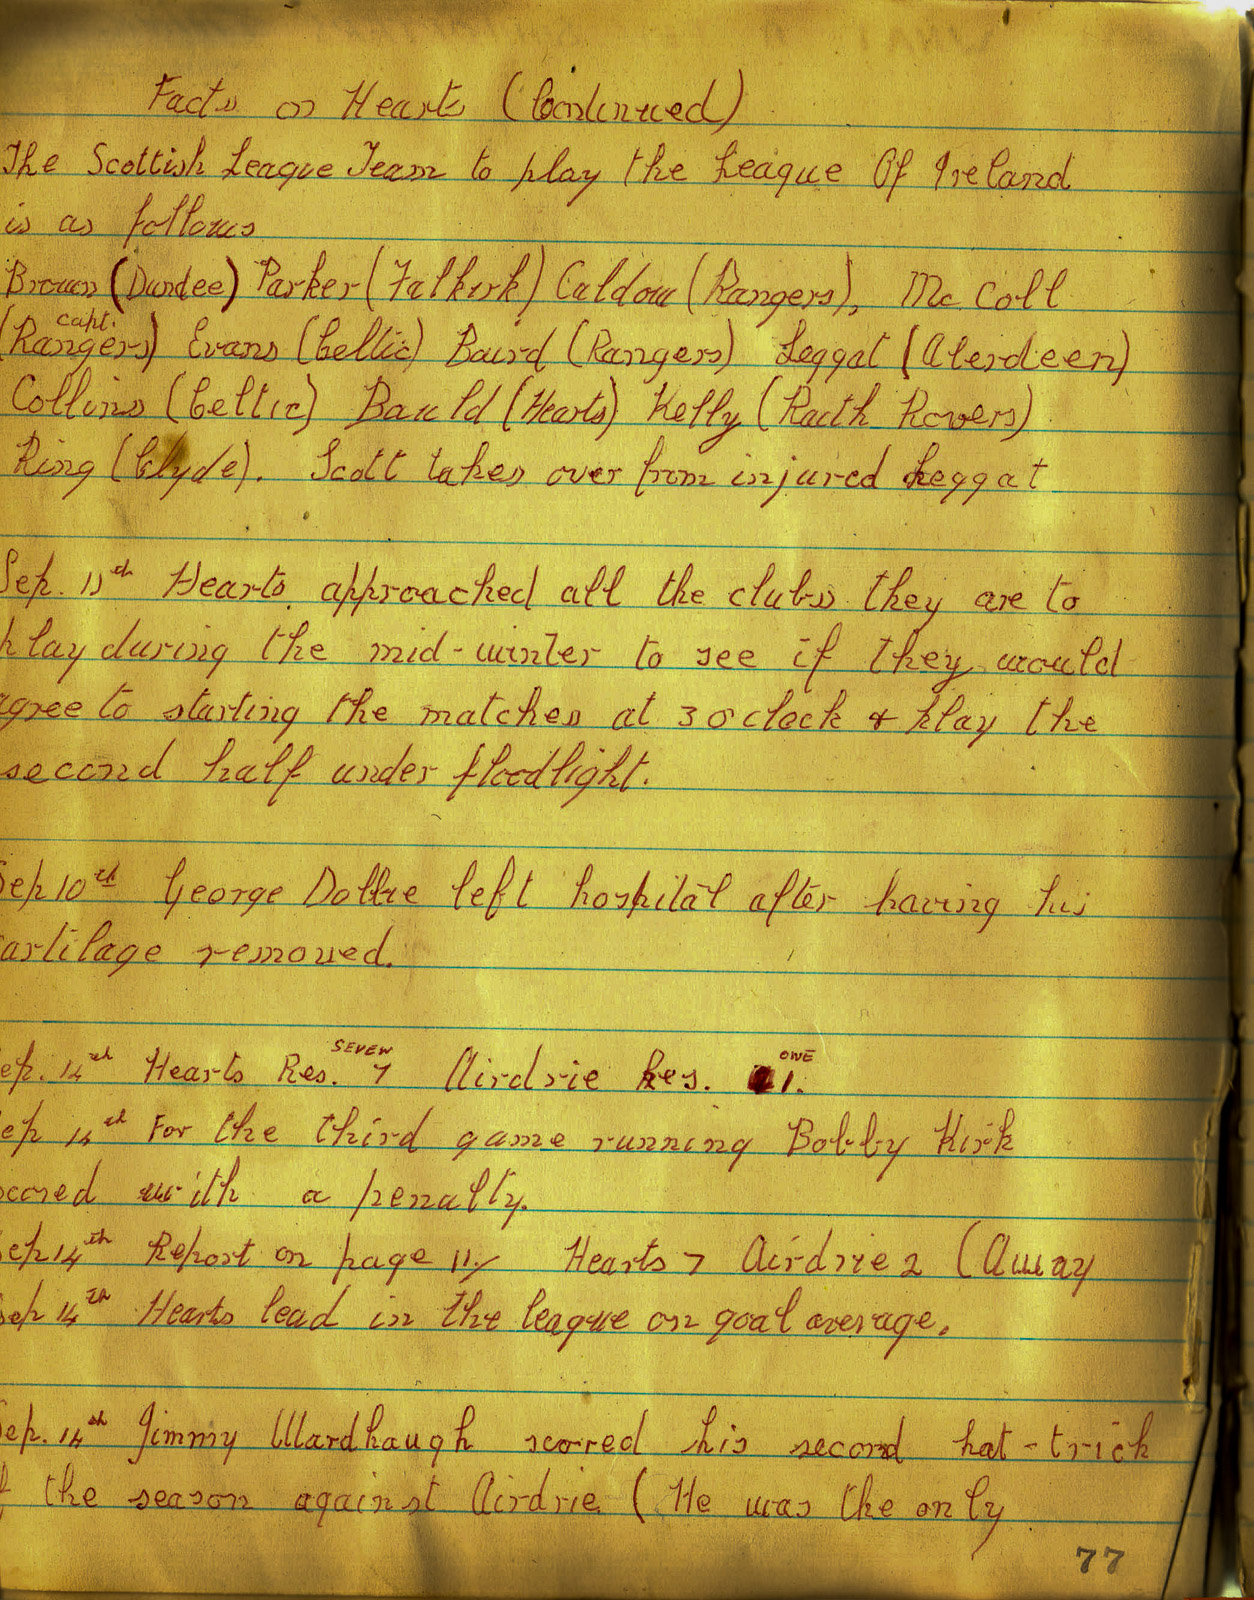 Facts on Hearts (Continued)
The Scottish League Team to play the League Of Ireland
is as follows
Brown (Dundee) Parker (Falkirk) Caldow (Rangers), Mc Coll
capt.
(Rangers) Evans (Celtic) Baird (Rangers) Leggat (Aberdeen)
Collins (Celtic) Bauld (Hearts) Kelly (Raith Rovers)
Ring (Clyde). Scott takes over from injured Leggat
Sep. 11th Hearts approached all the clubs they are to
play during the mid-winter to see if they would
agree to starting the matches at 3 o clock & play the
second half under floodlight.
Sep 10th George Dobbie left hospital after having his
artilage removed.
SEVEN ONE
ep. 14th Hearts Res. 7 Airdrie Res. 1.
ep 14th For the third game running Bobby Kirk
cored with a penalty.
ep 14th Report on page 11/ Hearts 7 Airdrie 2 (Away
Sep 14th Hearts lead in the league on goal average.
Sep. 14th Jimmy Wardhaugh scored his second hat-trick
f the season against Airdrie (He was the only
77